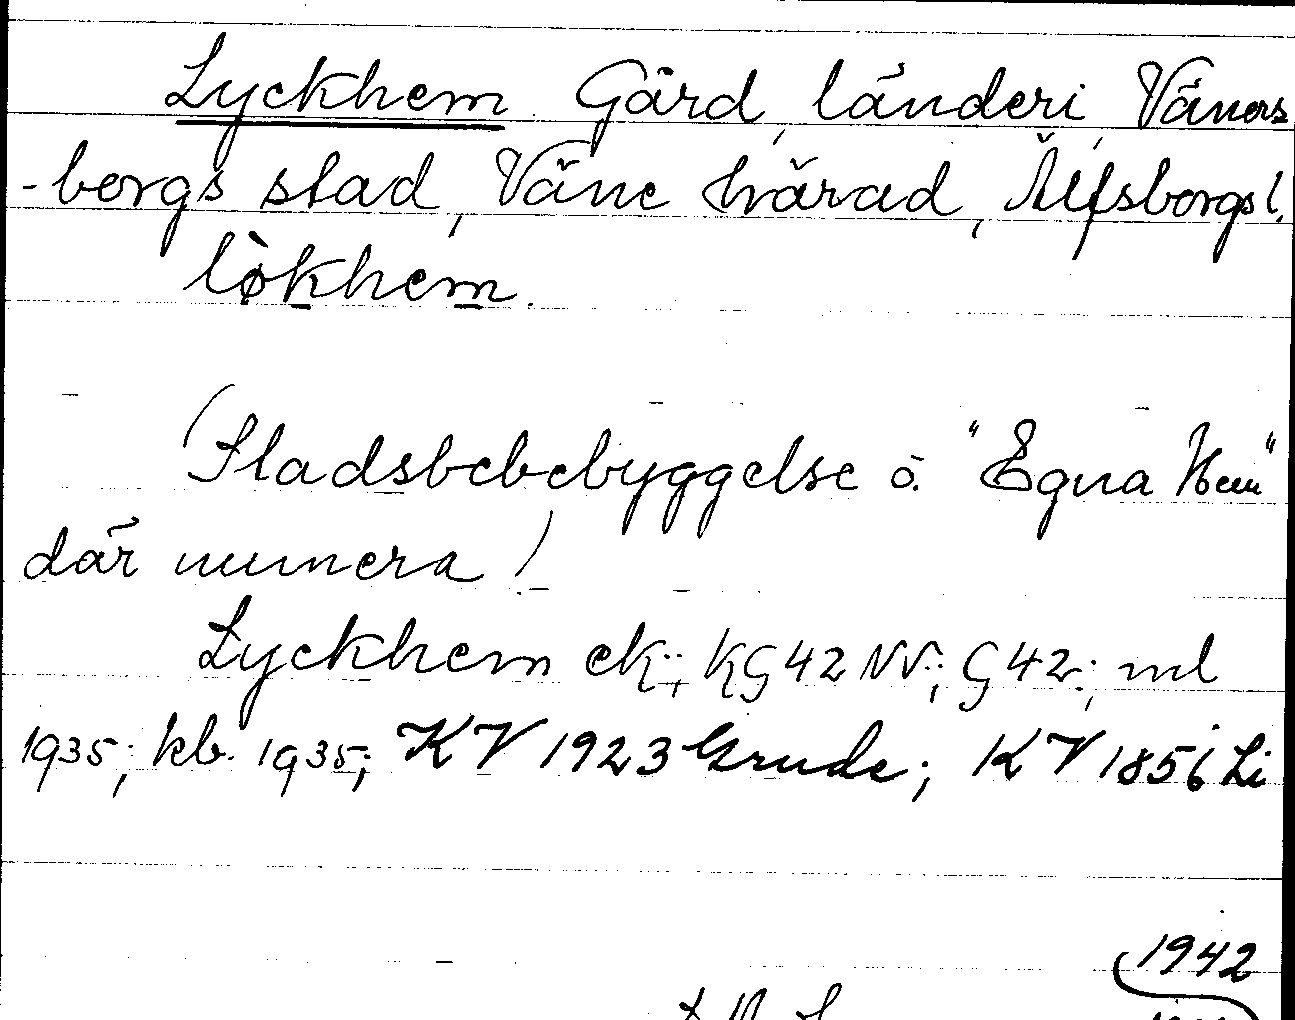 Lyckhem. Gård, länderi, Väners
-borgs stad, Väne härad, Älfsborgs l.
lòkhem.
(Stadsbebebyggelse o. "Egna Hem"
där numera)
Lyckhem ek.; KG 42 NV.; G 42.; ml
1935; kb. 1935; KV 1923 Grude; KV 1856 Li
1942